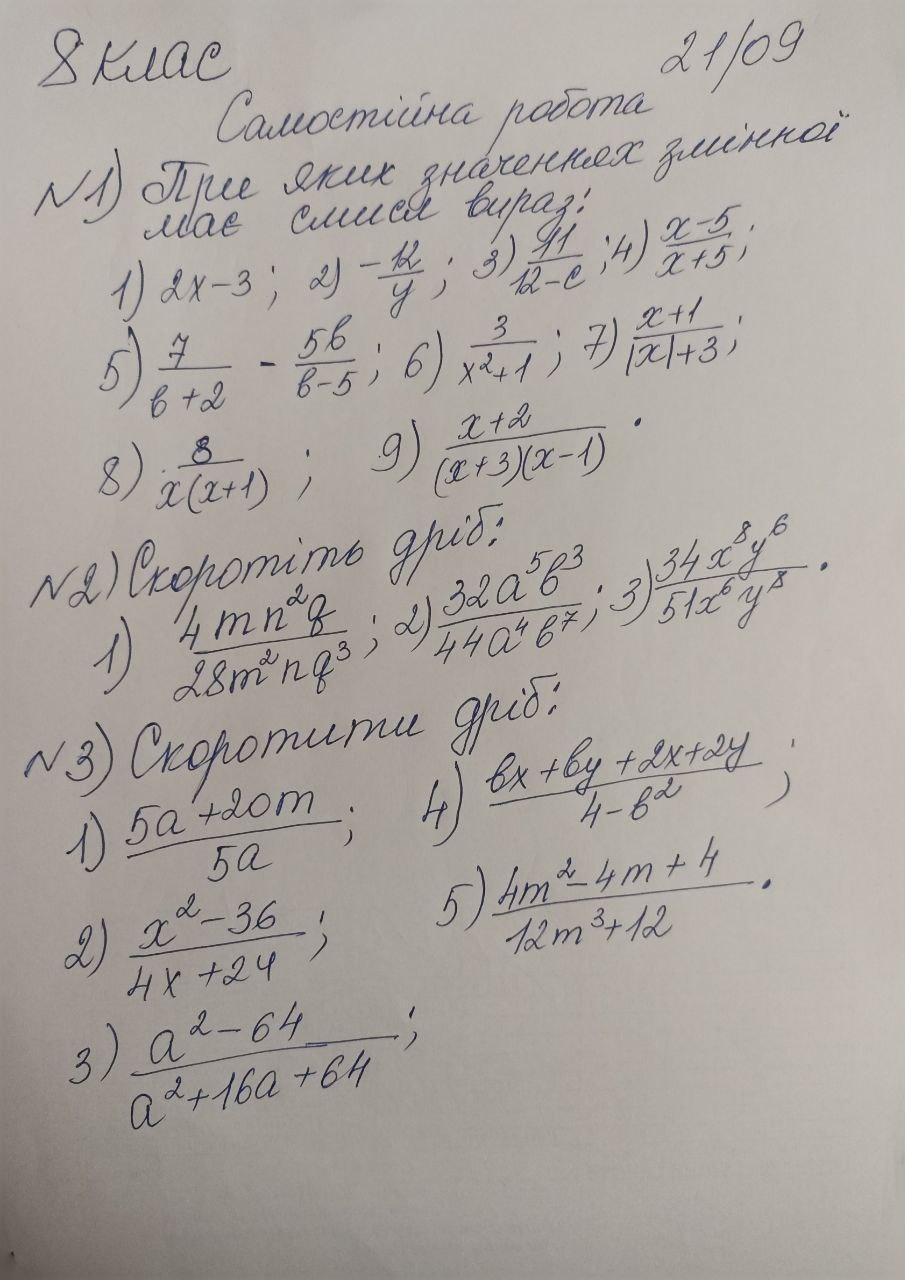 8 клас 21/09
Самостійна робота
№1) При яких значеннях змінної
має смисл вираз:
1) 2x-3; 2) -12/y; 3) 11/(12-c); 4) (x-5)/(x+5);
5) 7/(b+2) - 5b/(b-5); 6) 3/(x²+1); 7) (x+1)/(|x|+3);
8) 8/(x(x+1)); 9) (x+2)/((x+3)(x-1)).
№2) Скоротіть дріб:
1) 4mn²q/(28m²nq³); 2) 32a⁵b³/(44a⁴b⁷); 3) 34x⁸y⁶/(51x⁶y⁸).
№3) Скоротити дріб:
1) (5a+20m)/(5a); 4) (bx+by+2x+2y)/(4-b²);
2) (x²-36)/(4x+24); 5) (4m²-4m+4)/(12m³+12).
3) (a²-64)/(a²+16a+64);